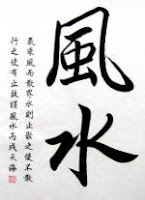 風水
氣乘風而散界水則止聚之使不散
行之使有止故謂風水丙戌天海